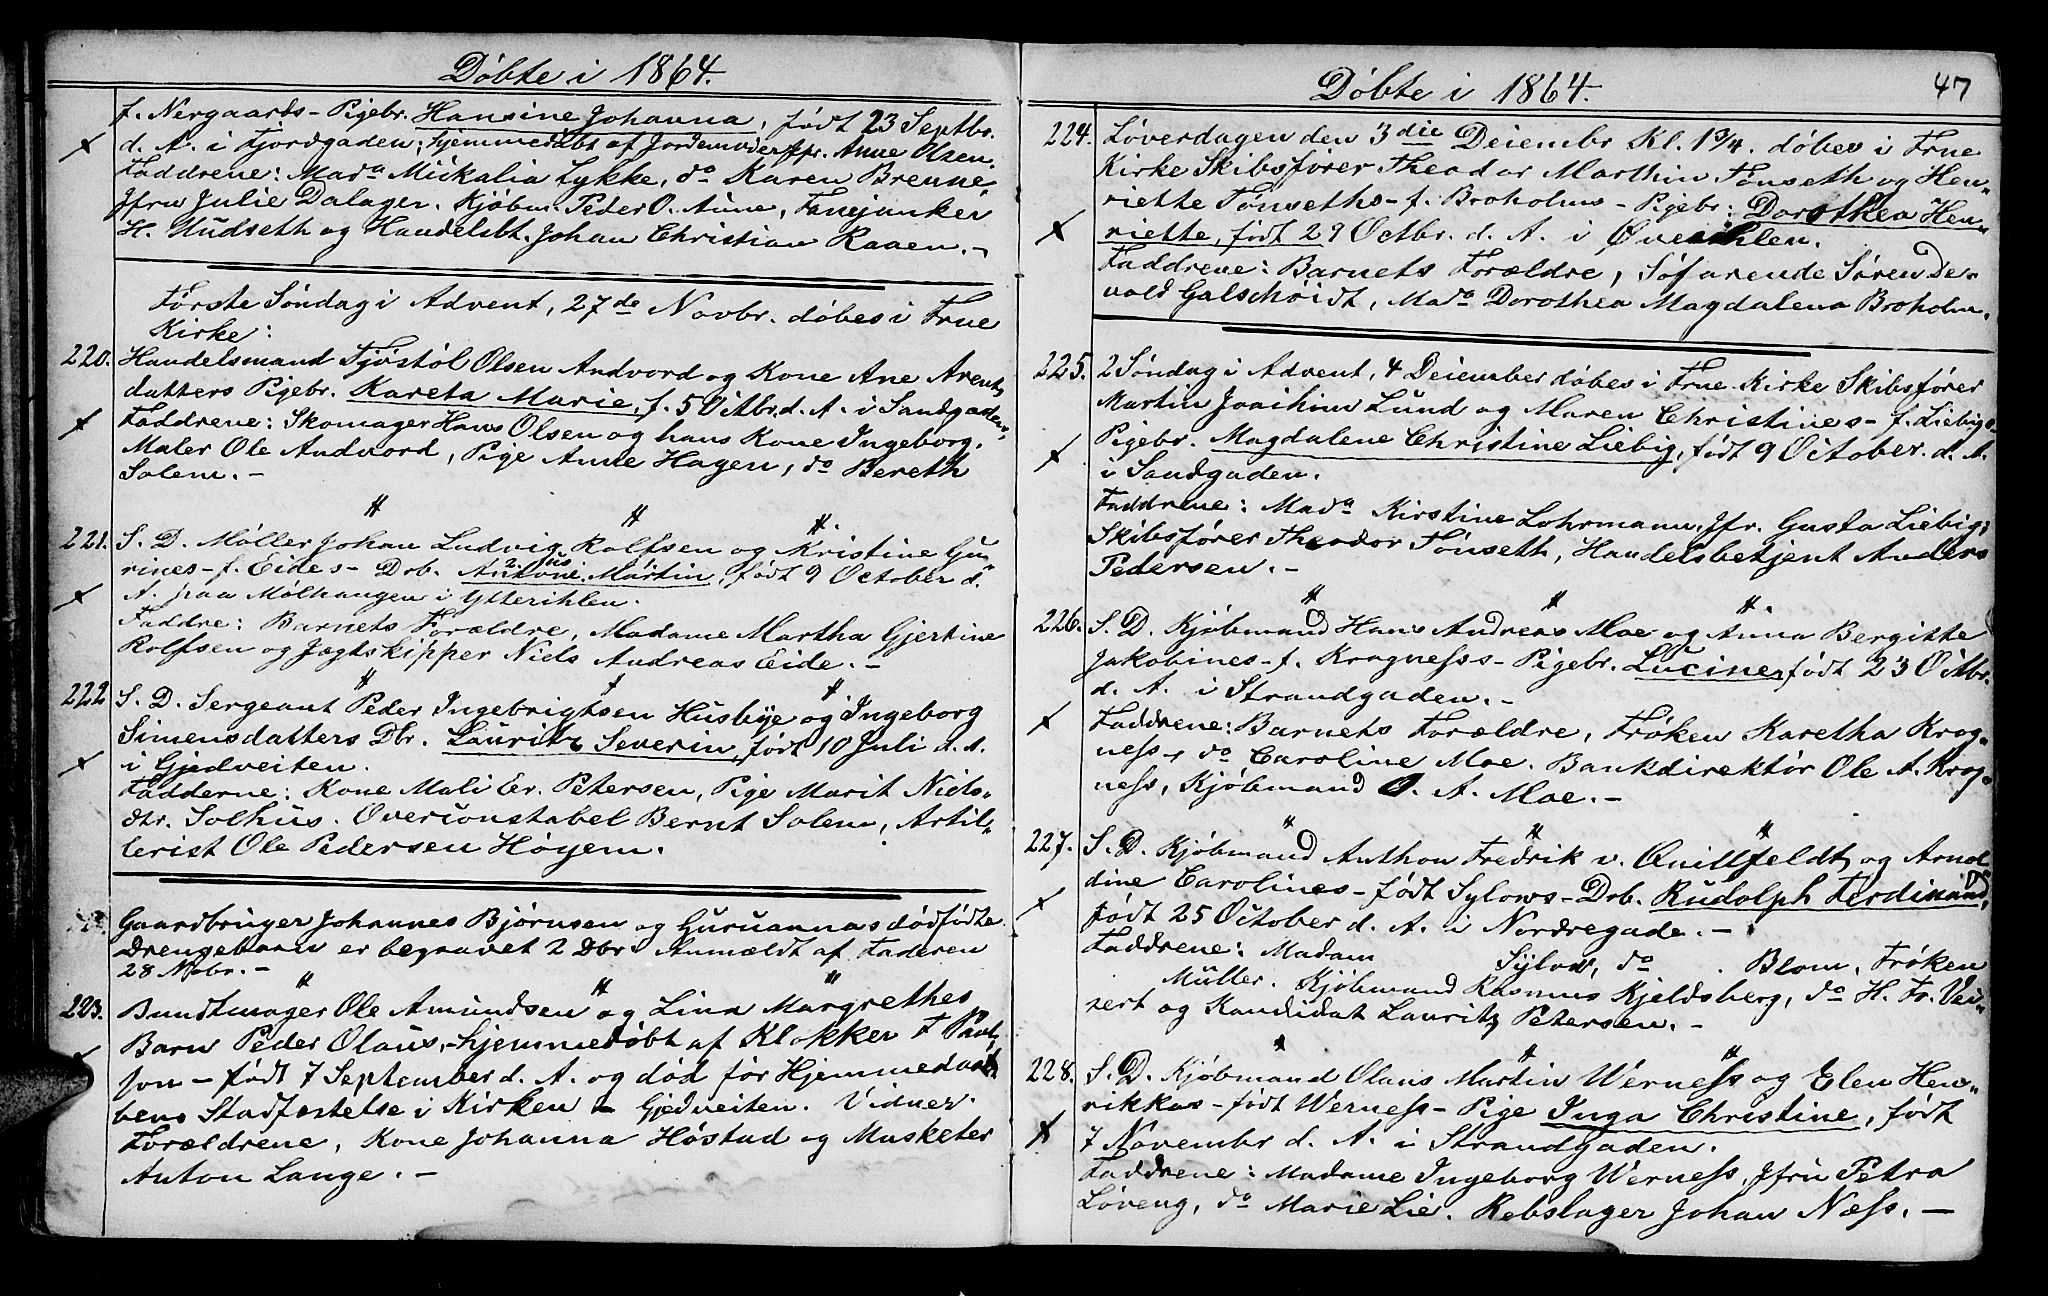 Döbte i 1864.
f. Nergaards - Pigebr. Hansine Johanna, født 23 Septbr.
d. A. i Fjordgaden; hjemmedöbt af Jordemoder Jfr. Anne Olsen.
Faddrene: Mada Mickalia Lykke, do Karen Brenne,
Jfru Julie Dalager. Kjöbm. Peder O. Aune, Fanejunker
H. Hudseth og Handelsbt. Johan Christian Raaen. -
Förste Söndag i Advent, 27de Novbr. döbes i Frue
Kirke:
220. Handelsmand Tjöstöl Olsen Andvord og Kone Ane Arents
datters Pigebr. Kareta Marie, f. 5 Octbr. d. A. i Sandgaden.
Faddrene: Skomager Hans Olsen og hans Kone Ingeborg.
Maler Ole Andvord, Pige Anne Hagen, do Bereth
Solem. -
221. S. D. Möller Johan Ludvig Rolfsen og Kristine Gu-
rines - f. Eides - Drb. Antoni Martin, født 9 October d.
A. paa Mølhaugen i Ytterihlen.
Faddre: Barnets Forældre, Madame Martha Gjertine
Rolfsen og Jægtskipper Niels Andreas Eide. -
222 S. D. Sergeant Peder Ingebrigtsen Husbye og Ingeborg
Simensdatters Dbr. Lauritz Severin, født 10 Juli d. A.
i Gjedveiten.
Fadderne: Kone Mali Er. Petersen, Pige Marit Niels-
dtr. Solhus. Overconstabel Bernt Solem, Artil-
lerist Ole Pedersen Höyem.
Gaardbruger Johannes Björnsen og Guruannas dödfödte
Drengebarn er begravet 2 Dbr. Anmældt af Faderen
28 Novbr. -
223. Bundtmager Ole Amundsen og Lina Margrethes
Barn Peder Olaus, hjemmedöbt af Klokker F Paul,
son - født 7 September d. A. og död för Hjemmedaa-
bens Stadfæstelse i Kirken - Gjedveiten. Vidner.
Forældrene, Kone Johanna Höstad og Musketer
Anton Lange. -
Döbte i 1864.
47
224. Löverdagen den 3die Decembr Kl. 1 3/4. döbes i Frue
Kirke Skibsförer Theodor Marthin Tönseth og Hen-
riette Tönseths - f. Broholms - Pigebr: Dorothea Hen-
riette, født 29 Octbr. d. A. i Øverihlen.
Faddrene: Barnets Forældre, Söfarende Sören De-
vold Galschöidt, Mada Dorothea Magdalena Broholm.
225. 2 Söndag i Advent, 4 December döbes i Frue Kirke Skibsförer
Martin Joachim Lund og Maren Christines - f. Liebigs
Pigebr. Magdalene Christine Liebig, født 9 October. d. A.
i Sandgaden.
Faddrene: Mada Kirstine Lohrmann, Jfr. Gusta Liebig,
Skibsförer Theodor Tönseth, Handelsbetjent Anders
Pedersen. -
226. S. D. Kjöbmand Hans Andreas Moe og Anna Bergitte
Jakobines - f. Krogness - Pigebr. Lucine, født 23 Octbr.
d. A. i Strandgaden. -
Faddrene: Barnets Forældre, Fröken Karetha Krog-
ness, do Caroline Moe. Bankdirektör Ole A. Krog-
ness, Kjöbmand O. A. Moe. -
227. S. D. Kjöbmand Anthon Fredrik v. Quillfeldt, og Arnol-
dine Carolines - født Sylows - Drb. Rudolph Ferdinand,
født 25 October d. A. i Nordregade. -
Faddrene: Madam Sylow, do Blom, Fröken
Müller. Kjöbmand Rasmus Kjeldsberg, do H. Fr. Vei-
nert og Kandidat Lauritz Petersen. -
228. S. D. Kjöbmand Olaus Martin Werness og Elen Hen-
rikkas - født Werness - Pige Inga Christine, født
7 Novembr d. A. i Strandgaden.
Faddrene: Madame Ingeborg Werness, Jfru Petra
Löveng, do Marie Lie. Rebslager Johan Næss. -